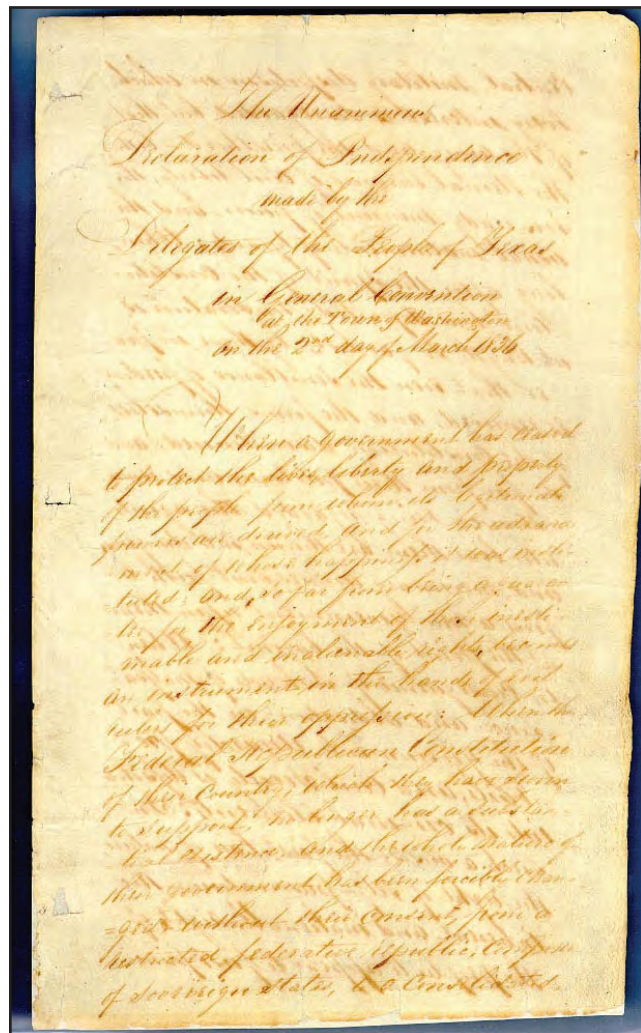 The Unanimous
Declaration of Independence
made by the
Delegates of the People of Texas
in General Convention
at the Town of Washington
on the 2nd day of March 1836
When a government has ceased
to protect the lives, liberty and property
of the people from whom its legitimate
powers are derived, and for the advance
ment of whose happiness it was insti
tuted; and, so far from being a guaran
tee for the enjoyment of those inesti
mable and inalienable rights, becomes
an instrument in the hands of evil
rulers for their oppression: When the
Federal Republican Constitution
of their Country, which they have sworn
to support, no longer has a substan
tial existence, and the whole nature of
their government has been forcibly chan
=ged without their consent, from a
restricted federative republic, composed
of sovereign states, to a consolidated